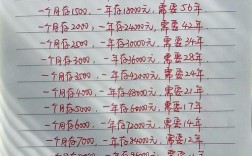 一个月存1500,一年存18000元,需要56年
一个月存2000,一年存24000元,需要42年
一个月存2500,一年存30000元,需要34年
一个月存3000,一年存36000元,需要28年
一个月存3500,一年存42000元,需要24年
一个月存4000,一年存48000元,需要21年
一个月存5000,一年存60000元,需要17年
一个月存6000,一年存72000元,需要14年
一个月存7000,一年存84000元,需要12年